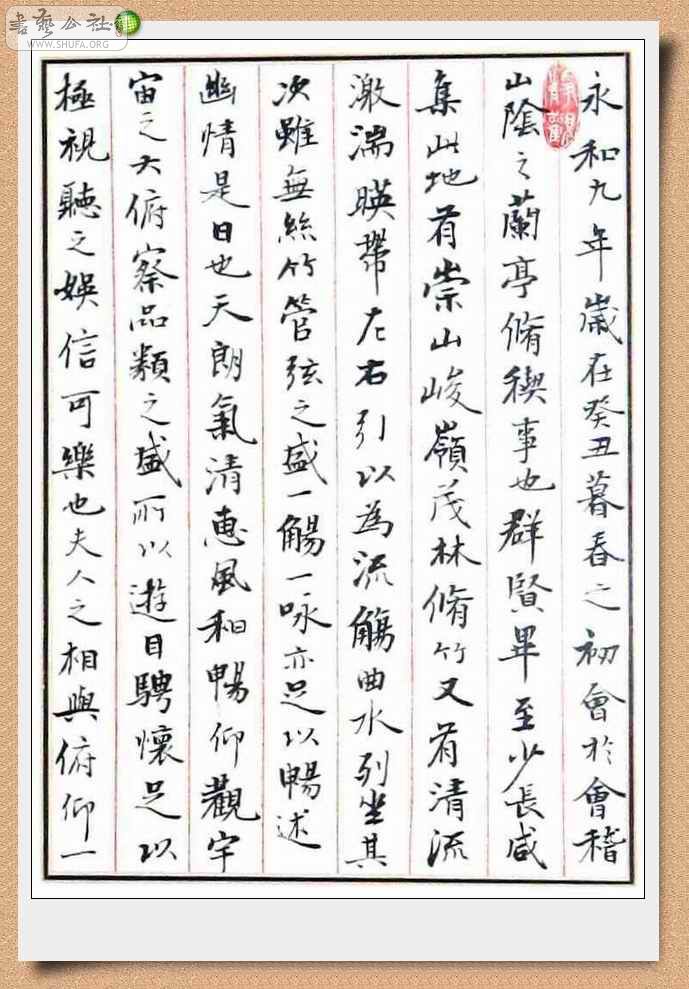 書藝公社
WWW.SHUFA.ORG
永和九年歲在癸丑暮春之初會於會稽
山陰之蘭亭脩稧事也群賢畢至少長咸
集此地有崇山峻嶺茂林脩竹又有清流
激湍暎帶左右引以為流觴曲水列坐其
次雖無絲竹管弦之盛一觴一咏亦足以暢述
幽情是日也天朗氣清惠風和暢仰觀宇
宙之大俯察品類之盛所以遊目騁懷足以
極視聽之娛信可樂也夫人之相與俯仰一